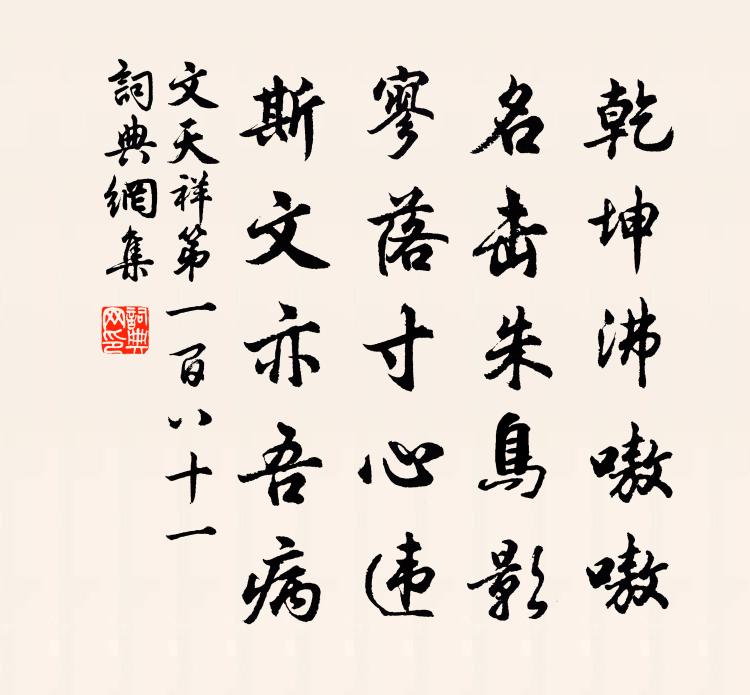 乾坤沸嗷嗷
名击朱鳥影
寥落寸心违
斯文亦吾病
文天祥第一百八十一
詞典網集
詞典网印